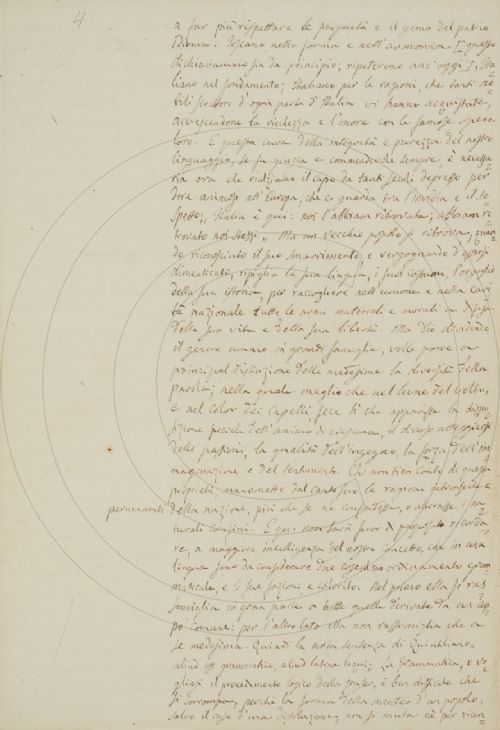 4
a far più rispettare le proprietà e il genio del patrio
Idioma. Toscano nella forma e nell'armonia [questo
dichiarammo sin da principio; ripeteremo anc'oggi]; Ita-
liano nel fondamento; Italiano per le ragioni, che tanti no-
bili scrittori d'ogni parte d'Italia vi hanno acquistate,
accrescendone la ricchezza e l'onore con le famose opere
loro. E questa cura della integrità e purezza del nostro
linguaggio, se fu giusta e commendevole sempre, è necessa-
ria ora che rialziamo il capo da tanti secoli depresso per
dire animosi all'Europa, che ci guarda tra l'invidia e il so-
spetto: „ Italia è qui: noi l'abbiam ritrovata; abbiam ri-
trovato noi stessi „ Ma un vecchio popolo si ritrova, quan-
do riconosciuto il suo smarrimento, e vergognando d'essersi
dimenticato, ripiglia la sua lingua, i suoi costumi, l'orgoglio
della sua istoria, per raccogliere nell'unione e nella cari-
tà nazionale tutte le armi materiali e morali a difesa
della sua vita e della sua libertà. Ma Dio dividendo
il genere umano in grandi famiglie, volle porre a
principal distinzione delle medesime la diversità della
parola; nella quale meglio che nel lume del volto,
e nel color dei capelli, fece sì che apparisse la dispo-
sizione speciale dell'animo di ciascuna, il diverso
delle passioni, la qualità dell'ingegno, la forza dell'im-
maginazione e del sentimento. Chi non tien conto di queste
proprietà, manomette dal canto suo le ragioni intrinseche e
permanenti della nazione, più che se ne confondesse, o alterasse i na-
turali confini. E qui non sarà fuor di proposito ricorda-
re, a maggiore intelligenza del nostro concetto, che in una
lingua sono da considerare due cose; il suo ordinamento gram-
maticale, e le sue fazioni e colorito. Nel primo ella si ras-
somiglia in gran parte a tutte quelle derivate da un cep-
po comune: per l'altro lato ella non rassomiglia che a
se medesima. Quindi la nota sentenza di Quintiliano,
aliud est grammatice, aliud latine loqui. La grammatica, e vo-
gliasi il procedimento logico della frase, è ben difficile che
si corrompa, perchè la forma della mente d'un popolo,
salvo il caso d'una dissoluzione, non si muta nè per vian-